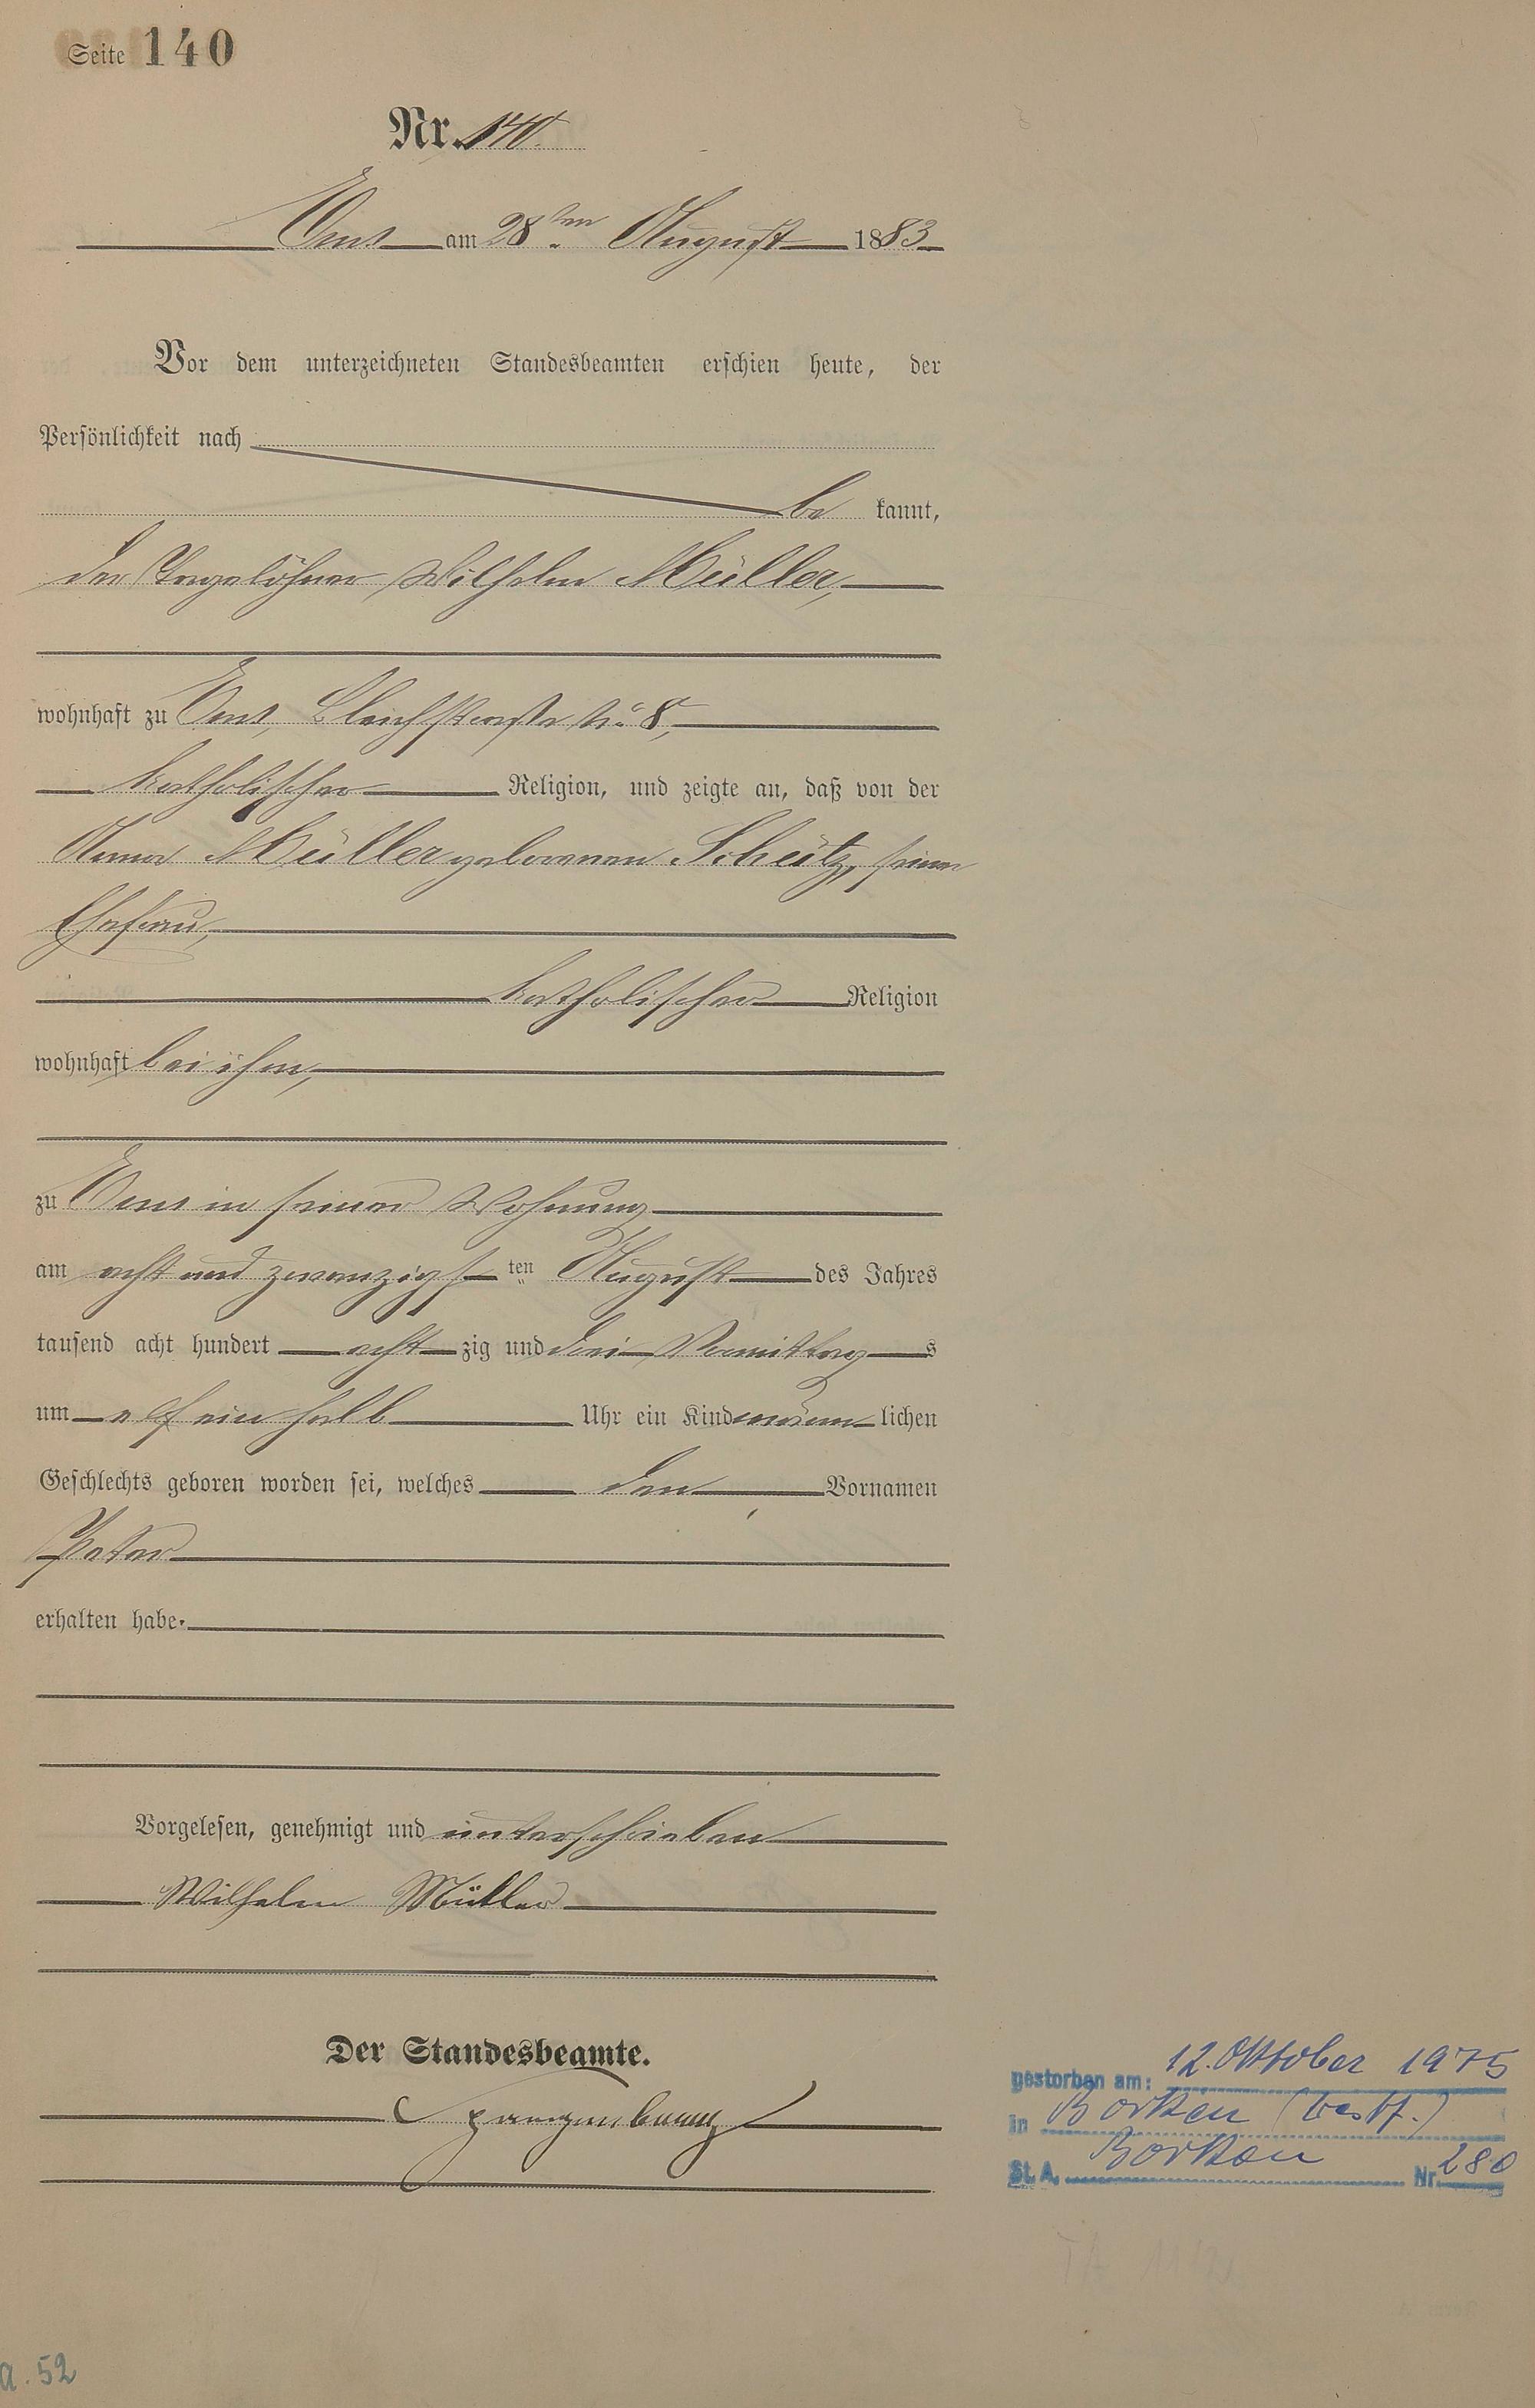 Seite 140
Nr. 140.
Ems am 28ten August 1883
Vor dem unterzeichneten Standesbeamten erschien heute, der
Persönlichkeit nach
be kannt,
der Tagelöhner Wilhelm Müller,
wohnhaft zu Ems, Bleichstraße No 8,
katholischer Religion, und zeigte an, daß von der
Anna Müller geborenen Scheütz, seiner
Ehefrau,
katholischer Religion
wohnhaft bei ihm,
zu Ems in seiner Wohnung
am acht und zwanzigsten August des Jahres
tausend acht hundert acht zig und drei Vormittags
um elf ein halb Uhr ein Kind männlichen
Geschlechts geboren worden sei, welches den Vornamen
Peter
erhalten habe.
Vorgelesen, genehmigt und unterschrieben
Wilhelm Müller
Der Standesbeamte.
Spangenberg
gestorben am: 12. Oktober 1975
in Borken (Westf.)
St. A. Borken Nr. 280
a. 52